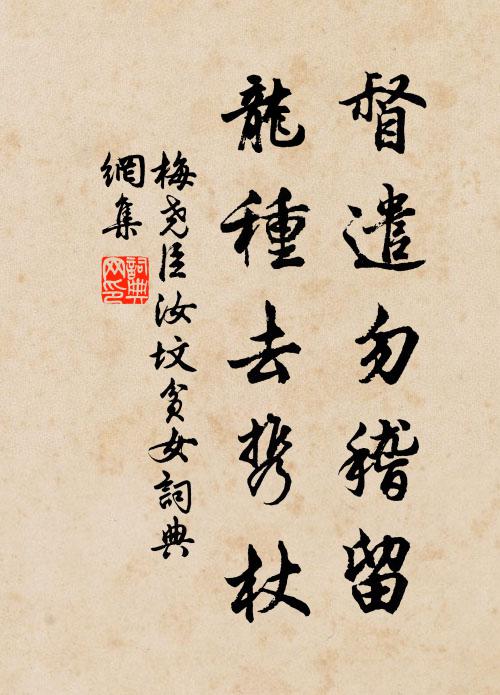 督遣勿稽留
龍種去携杖
梅尧臣汝坟贫女詞典
網集
詞典
网印